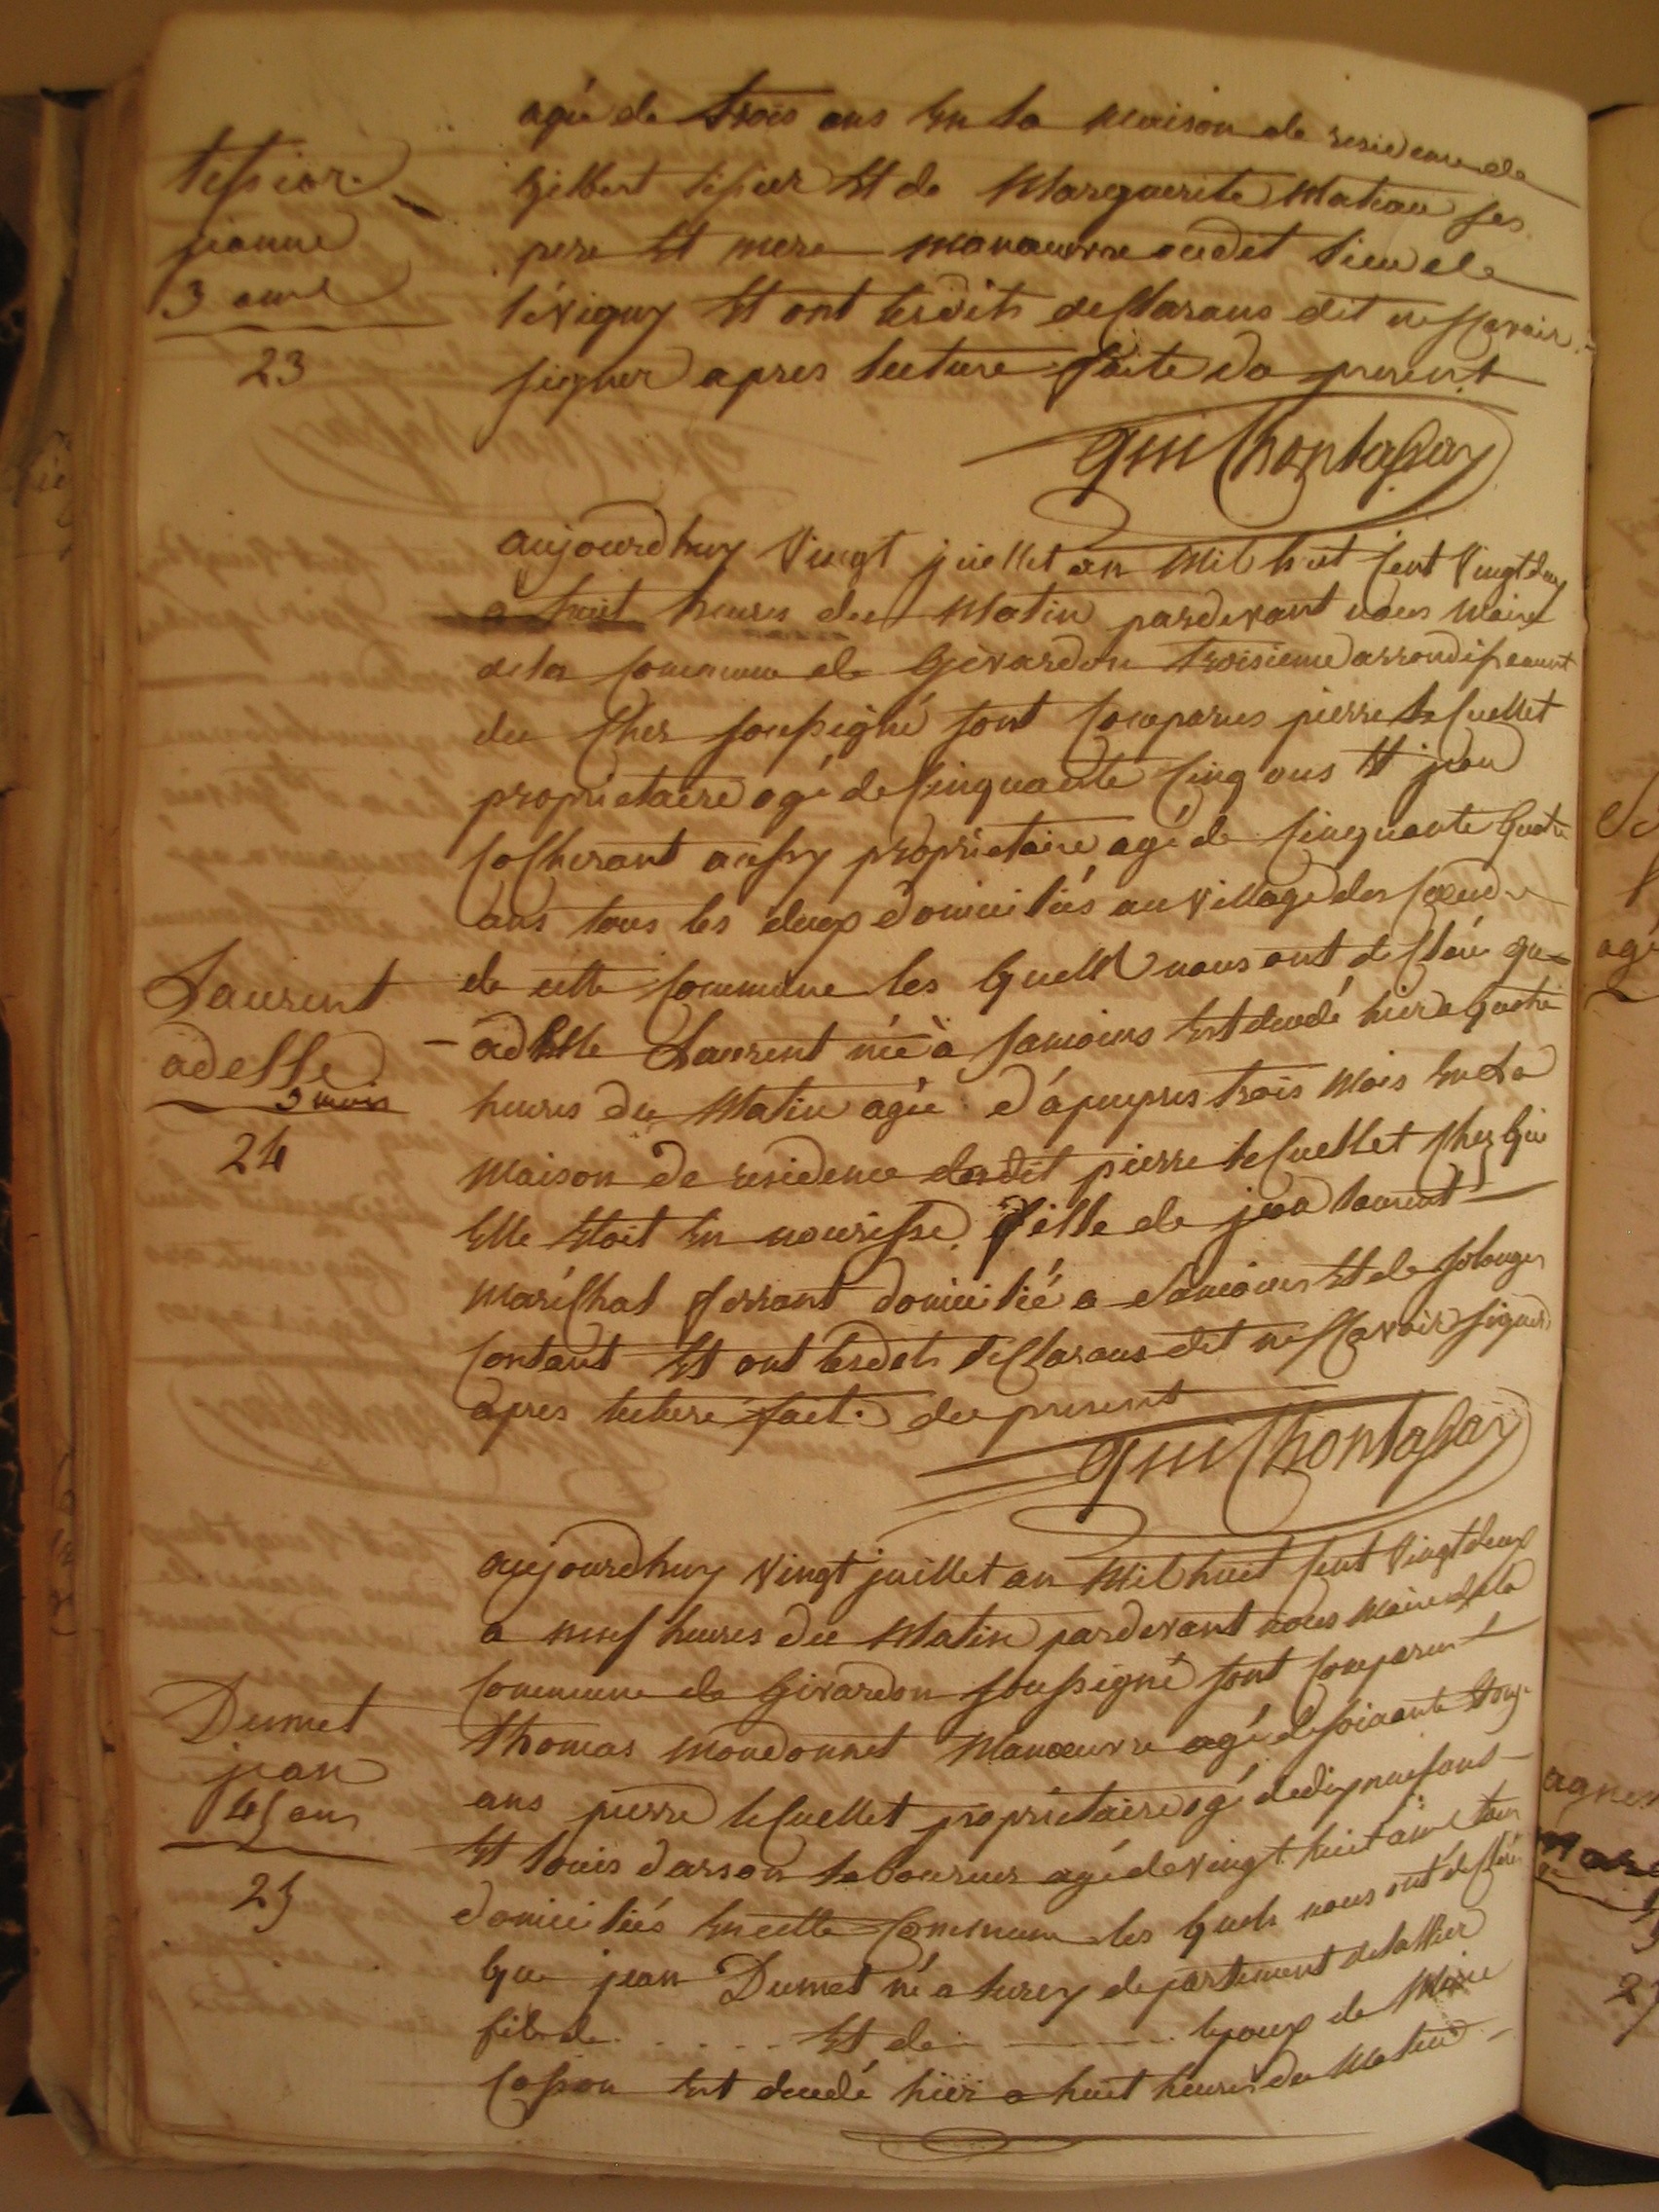 tissier
jeanne
3 ans
23
agée de trois ans en la maison de residence de
Gilbert tissier et de Marguerite Mativau ses
pere et mere manoeuvre audit lieu de
lévigny et ont lesdits desclarans dit ne scavoir
signer apres lecture faite du present
aujourdhuy Vingt juillet an Mil huit sent Vingt deux
a huit heures du Matin pardevant nous Maire
de la Commune de Givardon troisieme arrondissement
du Cher soussigné sont Comparus pierre lescuellet
proprietaire agé de Cinquante Cinq ans et jean
Cocherant aussy proprietaire agé de Cinquante quatre
ans tous les deux domiciliés au village des
de cette Commune les quells nous ont desclaré que
Laurent
adelle
3 mois
24
adelle Laurent née à Sancoins est decedé hier a quatre
heures du Matin agée d'apeupres trois Mois en la
Maison de residence dudit pierre lescuellet Chez qui
elle etoit en nourisse fille de jean laurent
Maréchal ferrant domicilié a Sancoins et de solange
Contant et ont lesdits desclarans dit ne scavoir signer
apres lecture fait du present
aujourdhuy Vingt juillet an Mil huit sent Vingt deux
a neuf heures du Matin pardevant nous Maire de la
Commune de Givardon soussigné sont Comparut
Dumet
jean
45 ans
25
thomas mondonnet Manoeuvre agé de soixante
ans pierre lescuellet proprietaire agé de dix neuf ans
et louis darson laboureur agé de vingt huit ans tous
domiciliés en cette Commune les quels nous ont desclaré
que jean Dumet né a lurcy departement de lallier
fils de . . . . . et de . . . . . epoux de Marie
Cosson est decedé hier a huit heures du Matin